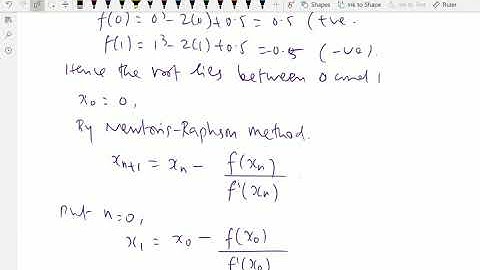 Shapes Ink to Shape Ruler
f(0) = 0³ - 2(0) + 0.5 = 0.5 (+ve.
f(1) = 1³ - 2(1) + 0.5 = -0.5 (-ve).
Hence the root lies between 0 and 1
x₀ = 0,
By Newton's-Raphson method.
xₙ₊₁ = xₙ - f(xₙ)/f'(xₙ)
Put n=0,
x₁ = x₀ - f(x₀)/f'(x₀)